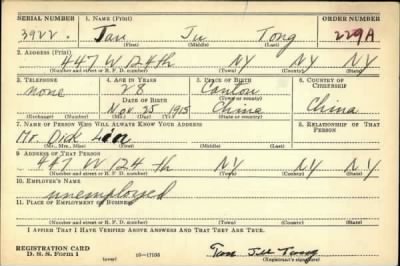 SERIAL NUMBER 1. NAME (Print) ORDER NUMBER
3922. Tan Ju Tong 229A
(First) (Middle) (Last)
2. ADDRESS (Print)
447 W 124th NY NY
(Number and street or R. F. D. number) (Town) (County) (State)
3. TELEPHONE 4. AGE IN YEARS 5. PLACE OF BIRTH 6. COUNTRY OF CITIZENSHIP
none 28 Canton
DATE OF BIRTH (Town or county)
Nov. 25 1915 China China
(Exchange) (Number) (Mo.) (Day) (Yr.) (State or country)
7. NAME OF PERSON WHO WILL ALWAYS KNOW YOUR ADDRESS 8. RELATIONSHIP OF THAT PERSON
Mr. Dick
(Mr., Mrs., Miss) (First) (Middle) (Last)
9. ADDRESS OF THAT PERSON
447 W 124 th NY NY
(Number and street or R. F. D. number) (Town) (County) (State)
10. EMPLOYER'S NAME
unemployed
11. PLACE OF EMPLOYMENT OR BUSINESS
(Number and street or R. F. D. number) (Town) (County) (State)
I AFFIRM THAT I HAVE VERIFIED ABOVE ANSWERS AND THAT THEY ARE TRUE.
REGISTRATION CARD
D. S. S. Form 1 (over) 16—17105 Tan Ju Tong
(Registrant's signature)